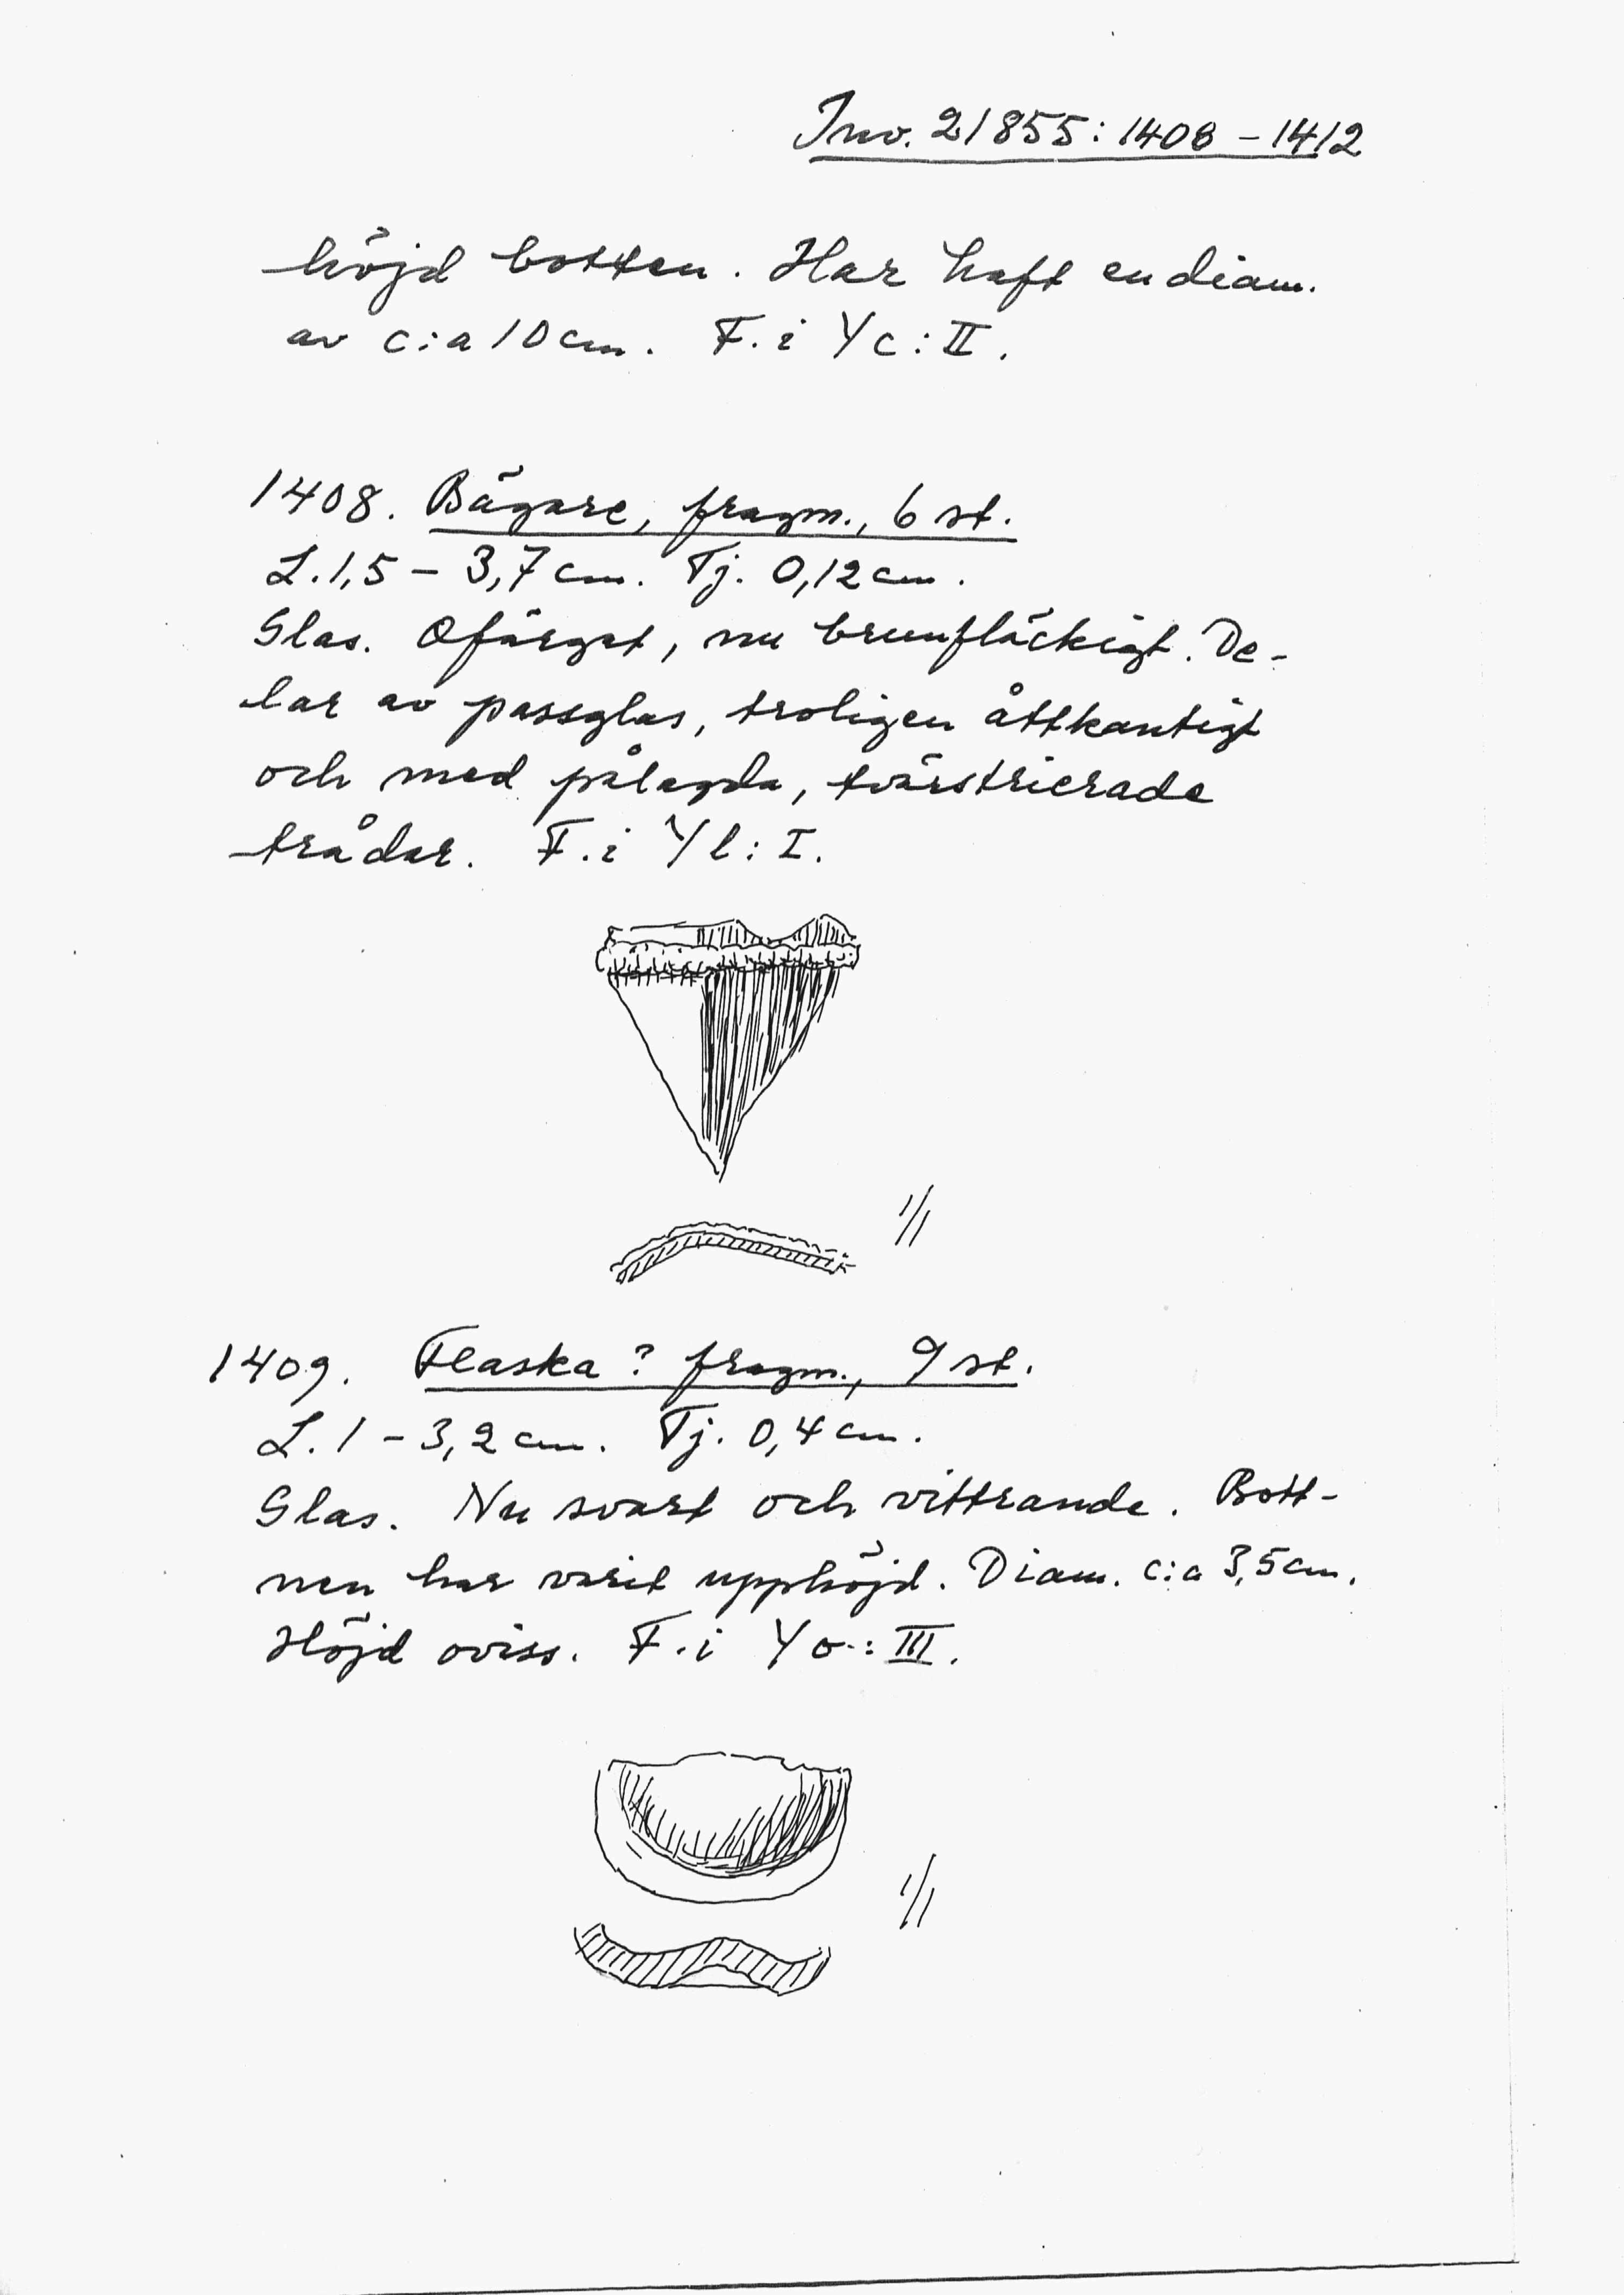 Inv. 21855: 1408 – 1412
höjd botten. Har haft en diam.
av c:a 10 cm. F. i Yc: II.
1408. Bägare, fragm., 6 st.
L. 1,5 – 3,7 cm. Tj. 0,12 cm.
Glas. Ofärgat, nu brunfläckigt. De-
lar av passglas, troligen åttkantigt
och med pålagda, tvärstrierade
trådar. F. i Yl: I.
1/1
1409. Flaska? fragm., 9 st.
L. 1 – 3,2 cm. Tj. 0,4 cm.
Glas. Nu svart och vittrande. Bott-
nen har varit upphöjd. Diam. c:a 3,5 cm.
Höjd oviss. F. i Yo: III.
1/1